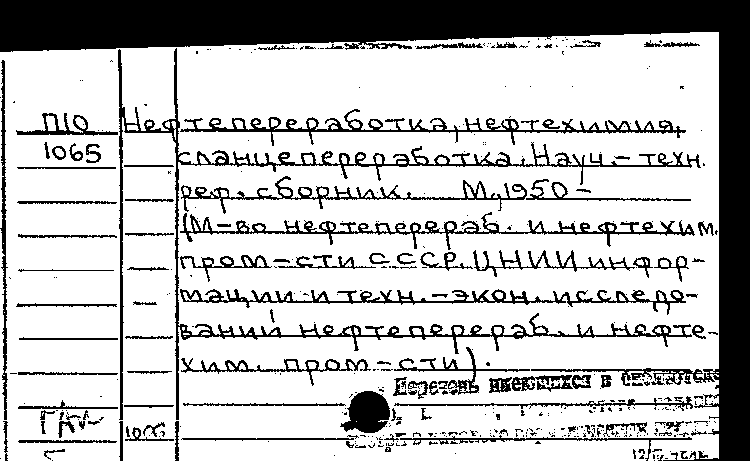 П10 Нефтепереработка, нефтехимия,
1065 сланцепереработка. Науч.-техн.
реф. сборник. М., 1950-
(М-во нефтеперераб. и нефтехим.
пром-сти СССР. ЦНИИ инфор-
мации и техн.-экон. исследо-
ваний нефтеперераб. и нефте-
хим. пром-сти).
Перечень имеющихся в